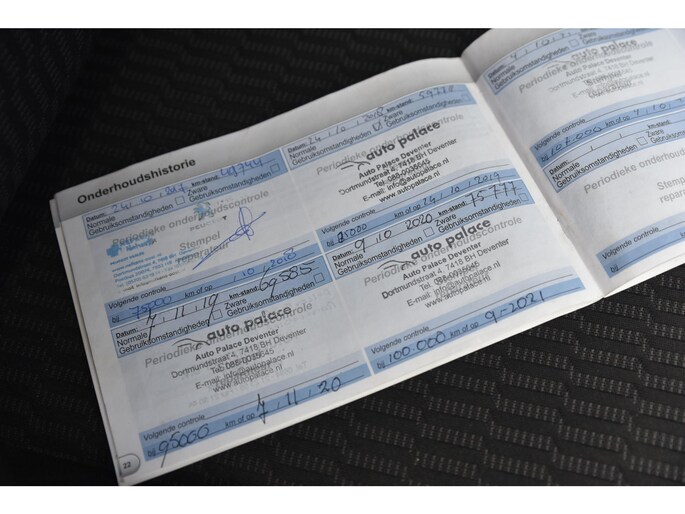 Onderhoudshistorie
Datum: 24.10.2017 km-stand: 
Normale Zware
Gebruiksomstandigheden
Periodieke onderhoudscontrole
Stempel
reparateur
Volgende controle
bij 75000 km of op 10.2018
Datum: 24.10.2018 km-stand: 59.778
Normale Zware
Gebruiksomstandigheden
Periodieke onderhoudscontrole
auto palace
Auto Palace Deventer
Dortmundstraat 4, 7418 BH Deventer
Tel: 088-0035645
E-mail: info@autopalace.nl
www.autopalace.nl
Volgende controle
bij 85000 km of op 24.10.2019
Datum: 7.11.19 km-stand: 69.585
Normale Zware
Gebruiksomstandigheden
Periodieke onderhoudscontrole
auto palace
Auto Palace Deventer
Dortmundstraat 4, 7418 BH Deventer
E-mail: info@autopalace.nl
www.autopalace.nl
Volgende controle
bij 95000 km of op 7.11.20
22
Datum: 9.10.2020 km-stand: 75.777
Normale Zware
Gebruiksomstandigheden
Periodieke onderhoudscontrole
auto palace
Auto Palace Deventer
Dortmundstraat 4, 7418 BH Deventer
E-mail: info@autopalace.nl
www.autopalace.nl
Volgende controle
bij 100.000 km of op 9-2021
Normale Zware
Gebruiksomstandigheden
Periodieke onderhoudscontrole
auto palace
Auto Palace Deventer
Volgende controle
bij 107.000 km of op
Datum: km-stand:
Normale Zware
Gebruiksomstandigheden
Periodieke onderhoudscontrole
Volgende controle